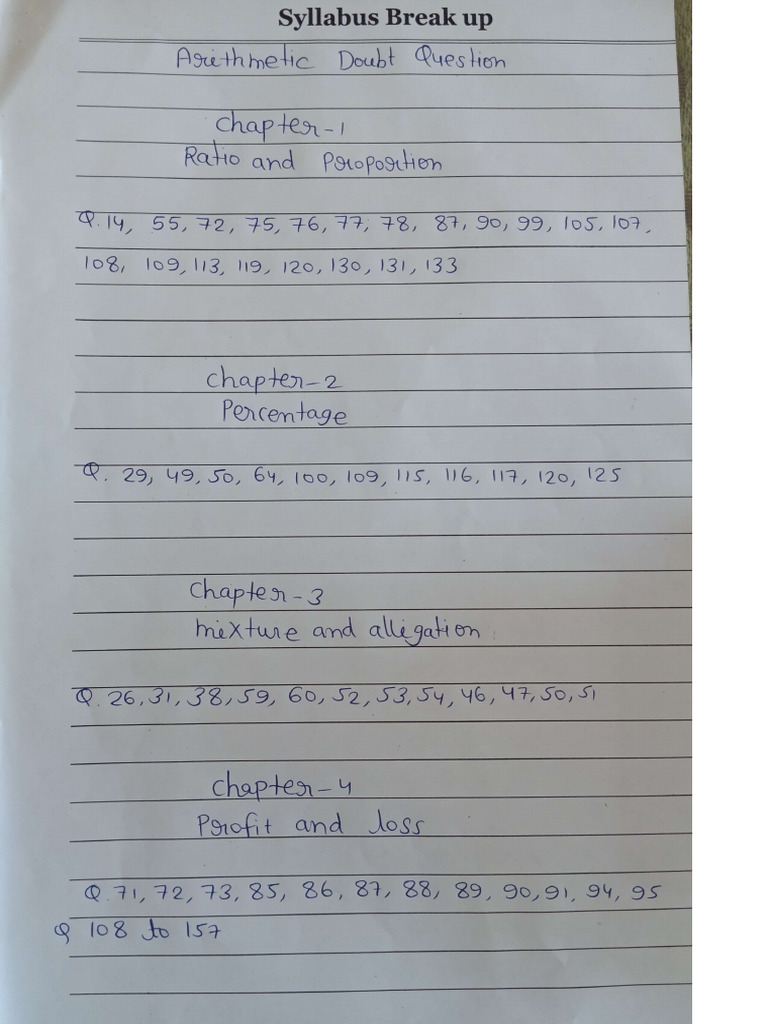 Syllabus Break up
Arithmetic Doubt Question
Chapter-1
Ratio and Proportion
Q. 14, 55, 72, 75, 76, 77, 78, 87, 90, 99, 105, 107,
108, 109, 113, 119, 120, 130, 131, 133
Chapter-2
Percentage
Q. 29, 49, 50, 64, 100, 109, 115, 116, 117, 120, 125
Chapter-3
mixture and allegation
Q. 26, 31, 38, 59, 60, 52, 53, 54, 46, 47, 50, 51
Chapter-4
Profit and loss
Q. 71, 72, 73, 85, 86, 87, 88, 89, 90, 91, 94, 95
Q 108 to 157